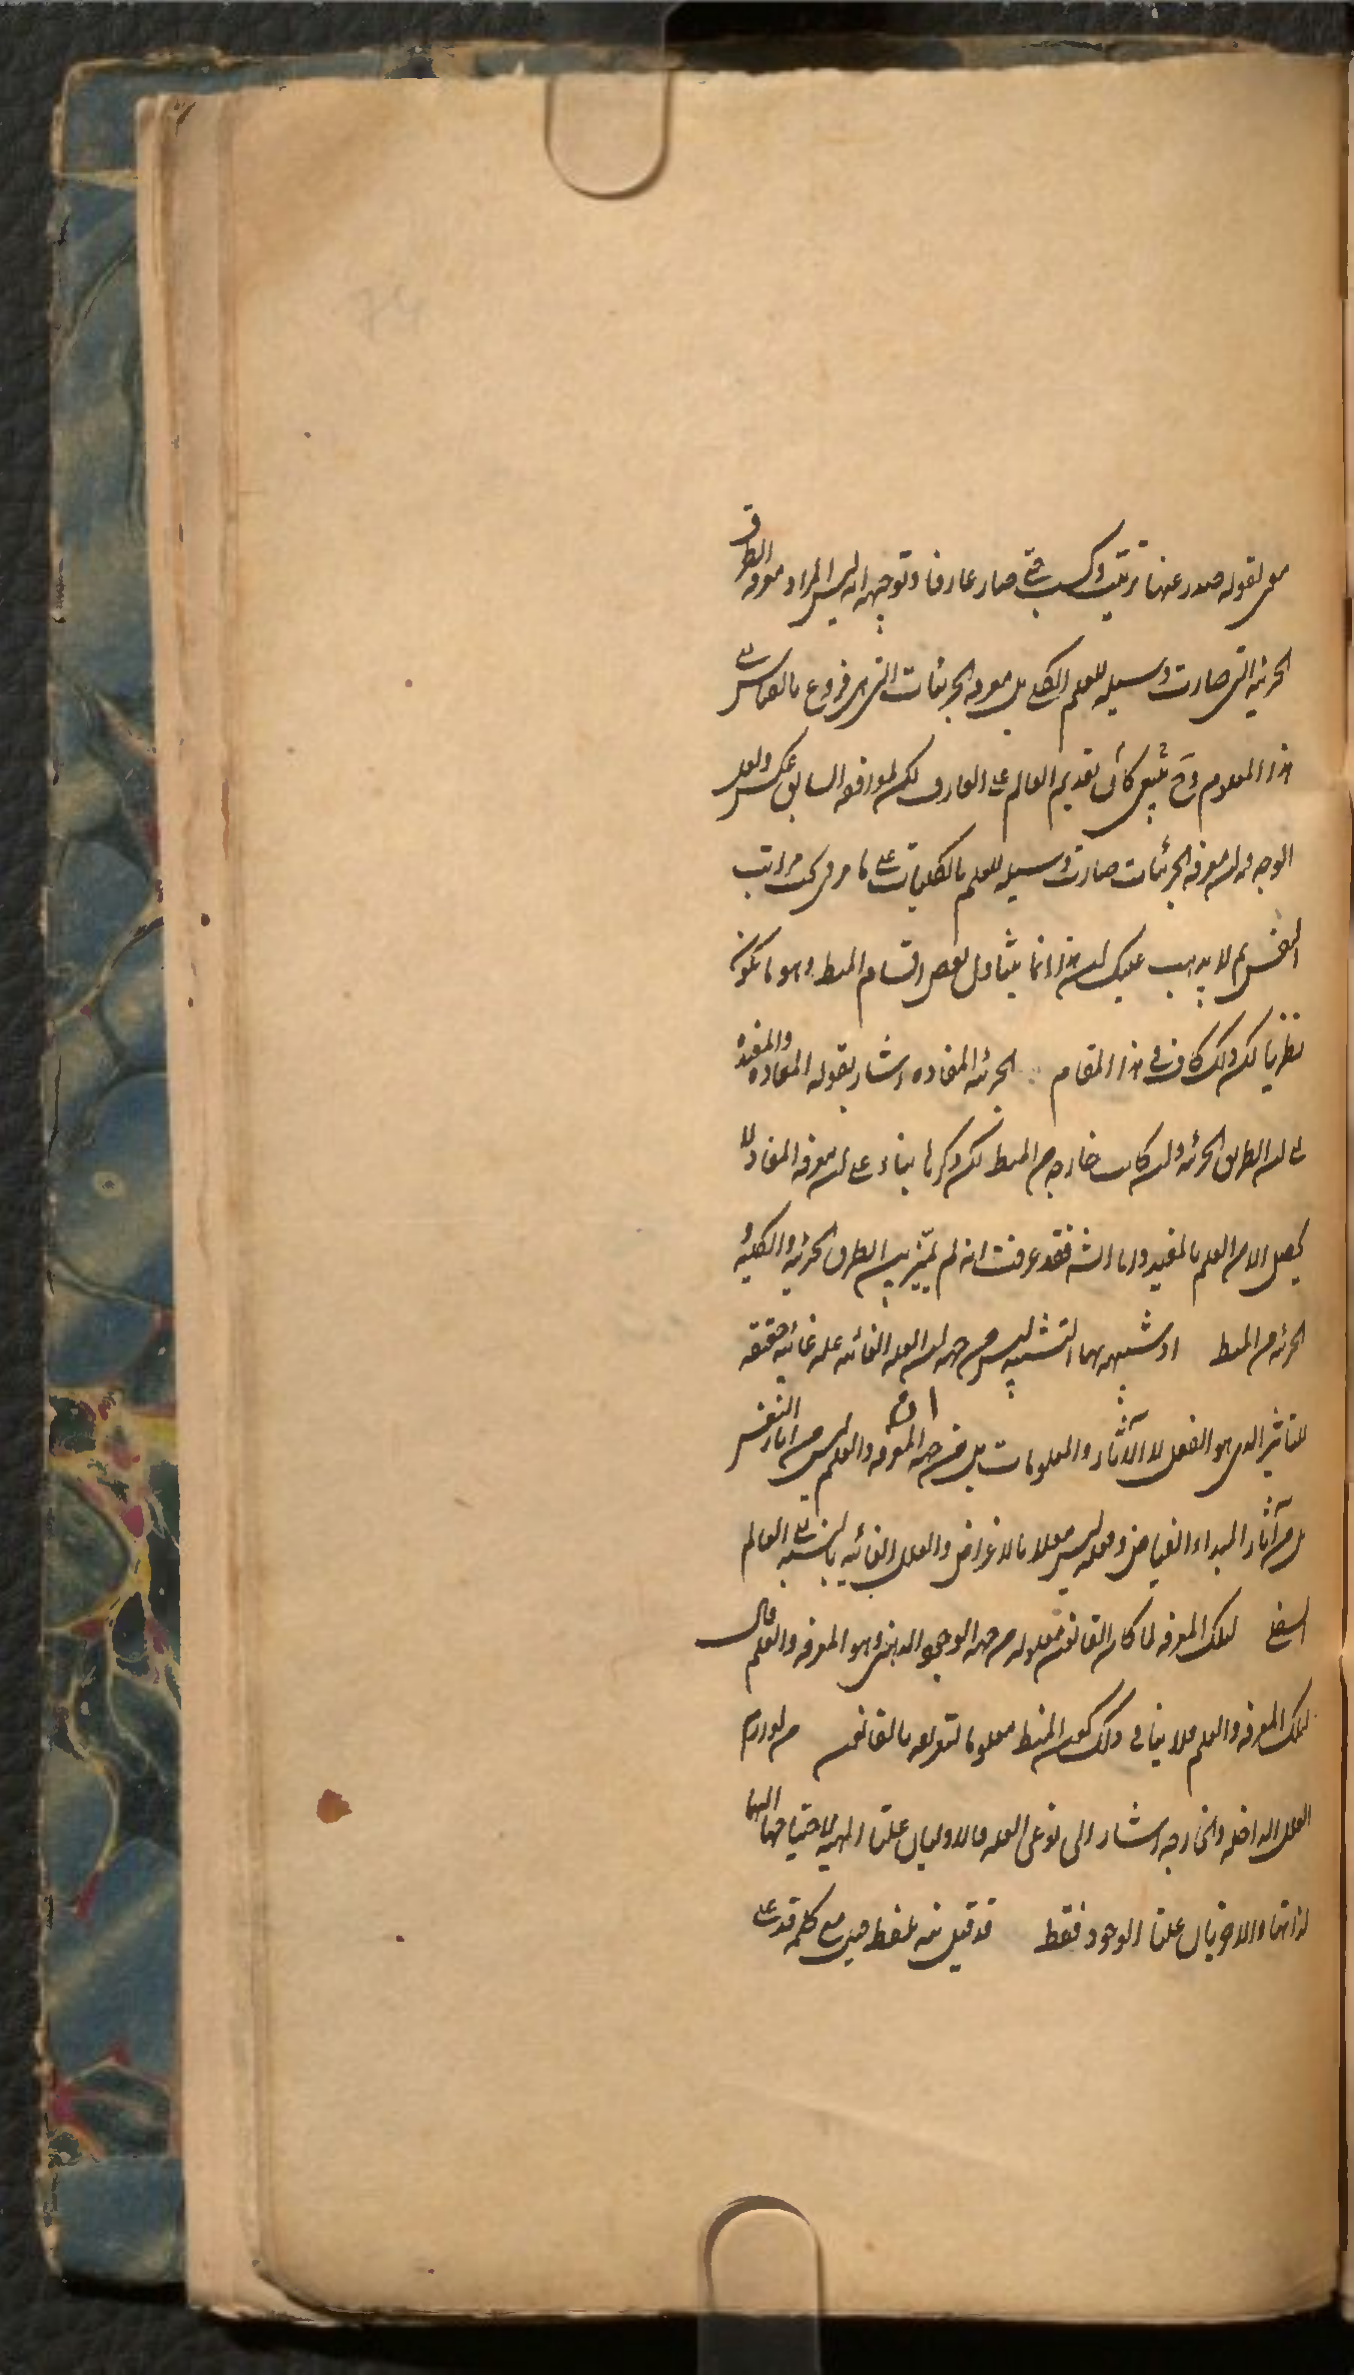 معنى لقوله صدر عنها ترتيب وكسب حتى صار عارفا وتوجيهه انه ليس المراد معرفه الطرق
الجزئيه التى صارت وسيله للعلم الكلى بل معرفه الجزئيات التى هى فروع بالقياس الى
هذا المعلوم وح ينبغى تقديم العالم على العارف لكن لموافقه السابق عكس ولعل
الوجه ان معرفه الجزئيات صارت وسيله للعلم بالكليات على ما مر فى مراتب
النفس ثم لا يذهب عليك ان هذا انما يتناول بعض اقسام المنط وهو ما يكون
نظريا لكن ذلك كاف فى هذا المقام الجزئيه المفاده اشار بقوله المفاده والمفيده
الى ان الطريق الجزئيه وان كانت خارجه عن المنط لكن ذكرها بناء على ان معرفه المفاد لا
يحصل الا من العلم بالمفيد واما الشه فقد عرفت انه لم يميز بين الطرق الجزئيه والكليه و
الجزئيه من المنط او شبهه بهما التشبيه ليس من جهه ان العله الغائيه عله غائيه حقيقه
للتاثير الذى هو الفعل لا الآثار والمعلومات بل من جهه ان المعرفه والعلم ليس من اثار النفس
بل من آثار المبداء الفياض وفعله ليس معللا بالاغراض والعلل الغائيه بالنسبه الى العالم
السفلى لتلك المعرفه لما كان القانون معلوله من جهه الوجود الذهنى وهو المعرفه والعلم قال
لتلك المعرفه والعلم فلا ينافى ذلك كون المنط معلوما لتعريفه بالقانون من لوازم
العلل الداخله والخارجه اشار الى نوعى العله فالاوليان علتا المهيه لاحتياجها اليها
لذاتها والاخريان علتا الوجود فقط قد قيل فيه بلفظ قيل مع كلمه قد على